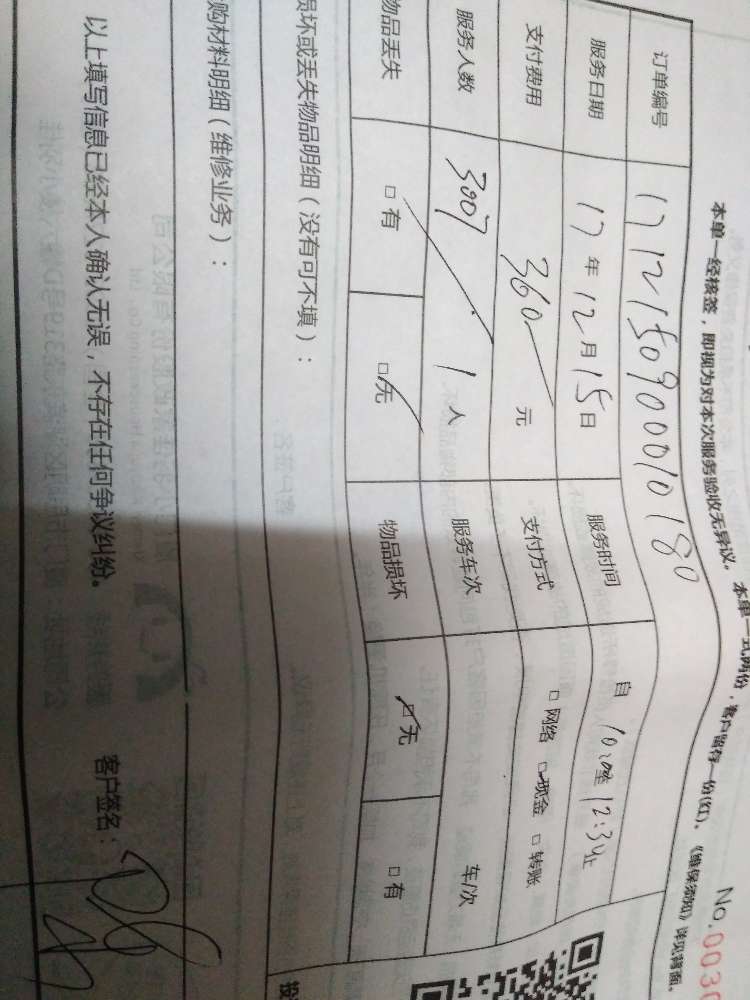 No.003
本单一经核签，即视为对本次服务验收无异议。本单一式两份，客户留存一份(红)、《维保须知》详见背面。
订单编号 1712150900010180
服务日期 17年12月15日 服务时间 自 10:00至12:34止
支付费用 360元 支付方式 □网络 □现金 □转账
服务人数 1人 服务车次 车/次
物品丢失 □有 □无 物品损坏 □无 □有
损坏或丢失物品明细（没有可不填）：
购材料明细（维修业务）：
以上填写信息已经本人确认无误，不存在任何争议纠纷。 客户签名：